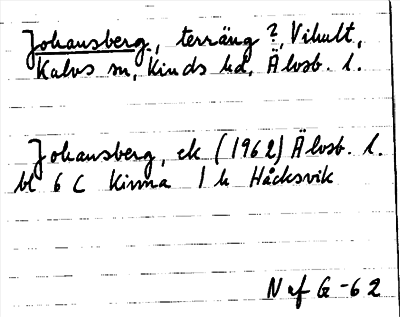 Johansberg, terräng?, Vihult,
Kalvs sn, Kinds hd, Älvsb. l.
Johansberg, ek (1962) Älvsb. l.
bl 6 C Kinna 1 h Håcksvik
N af G -62